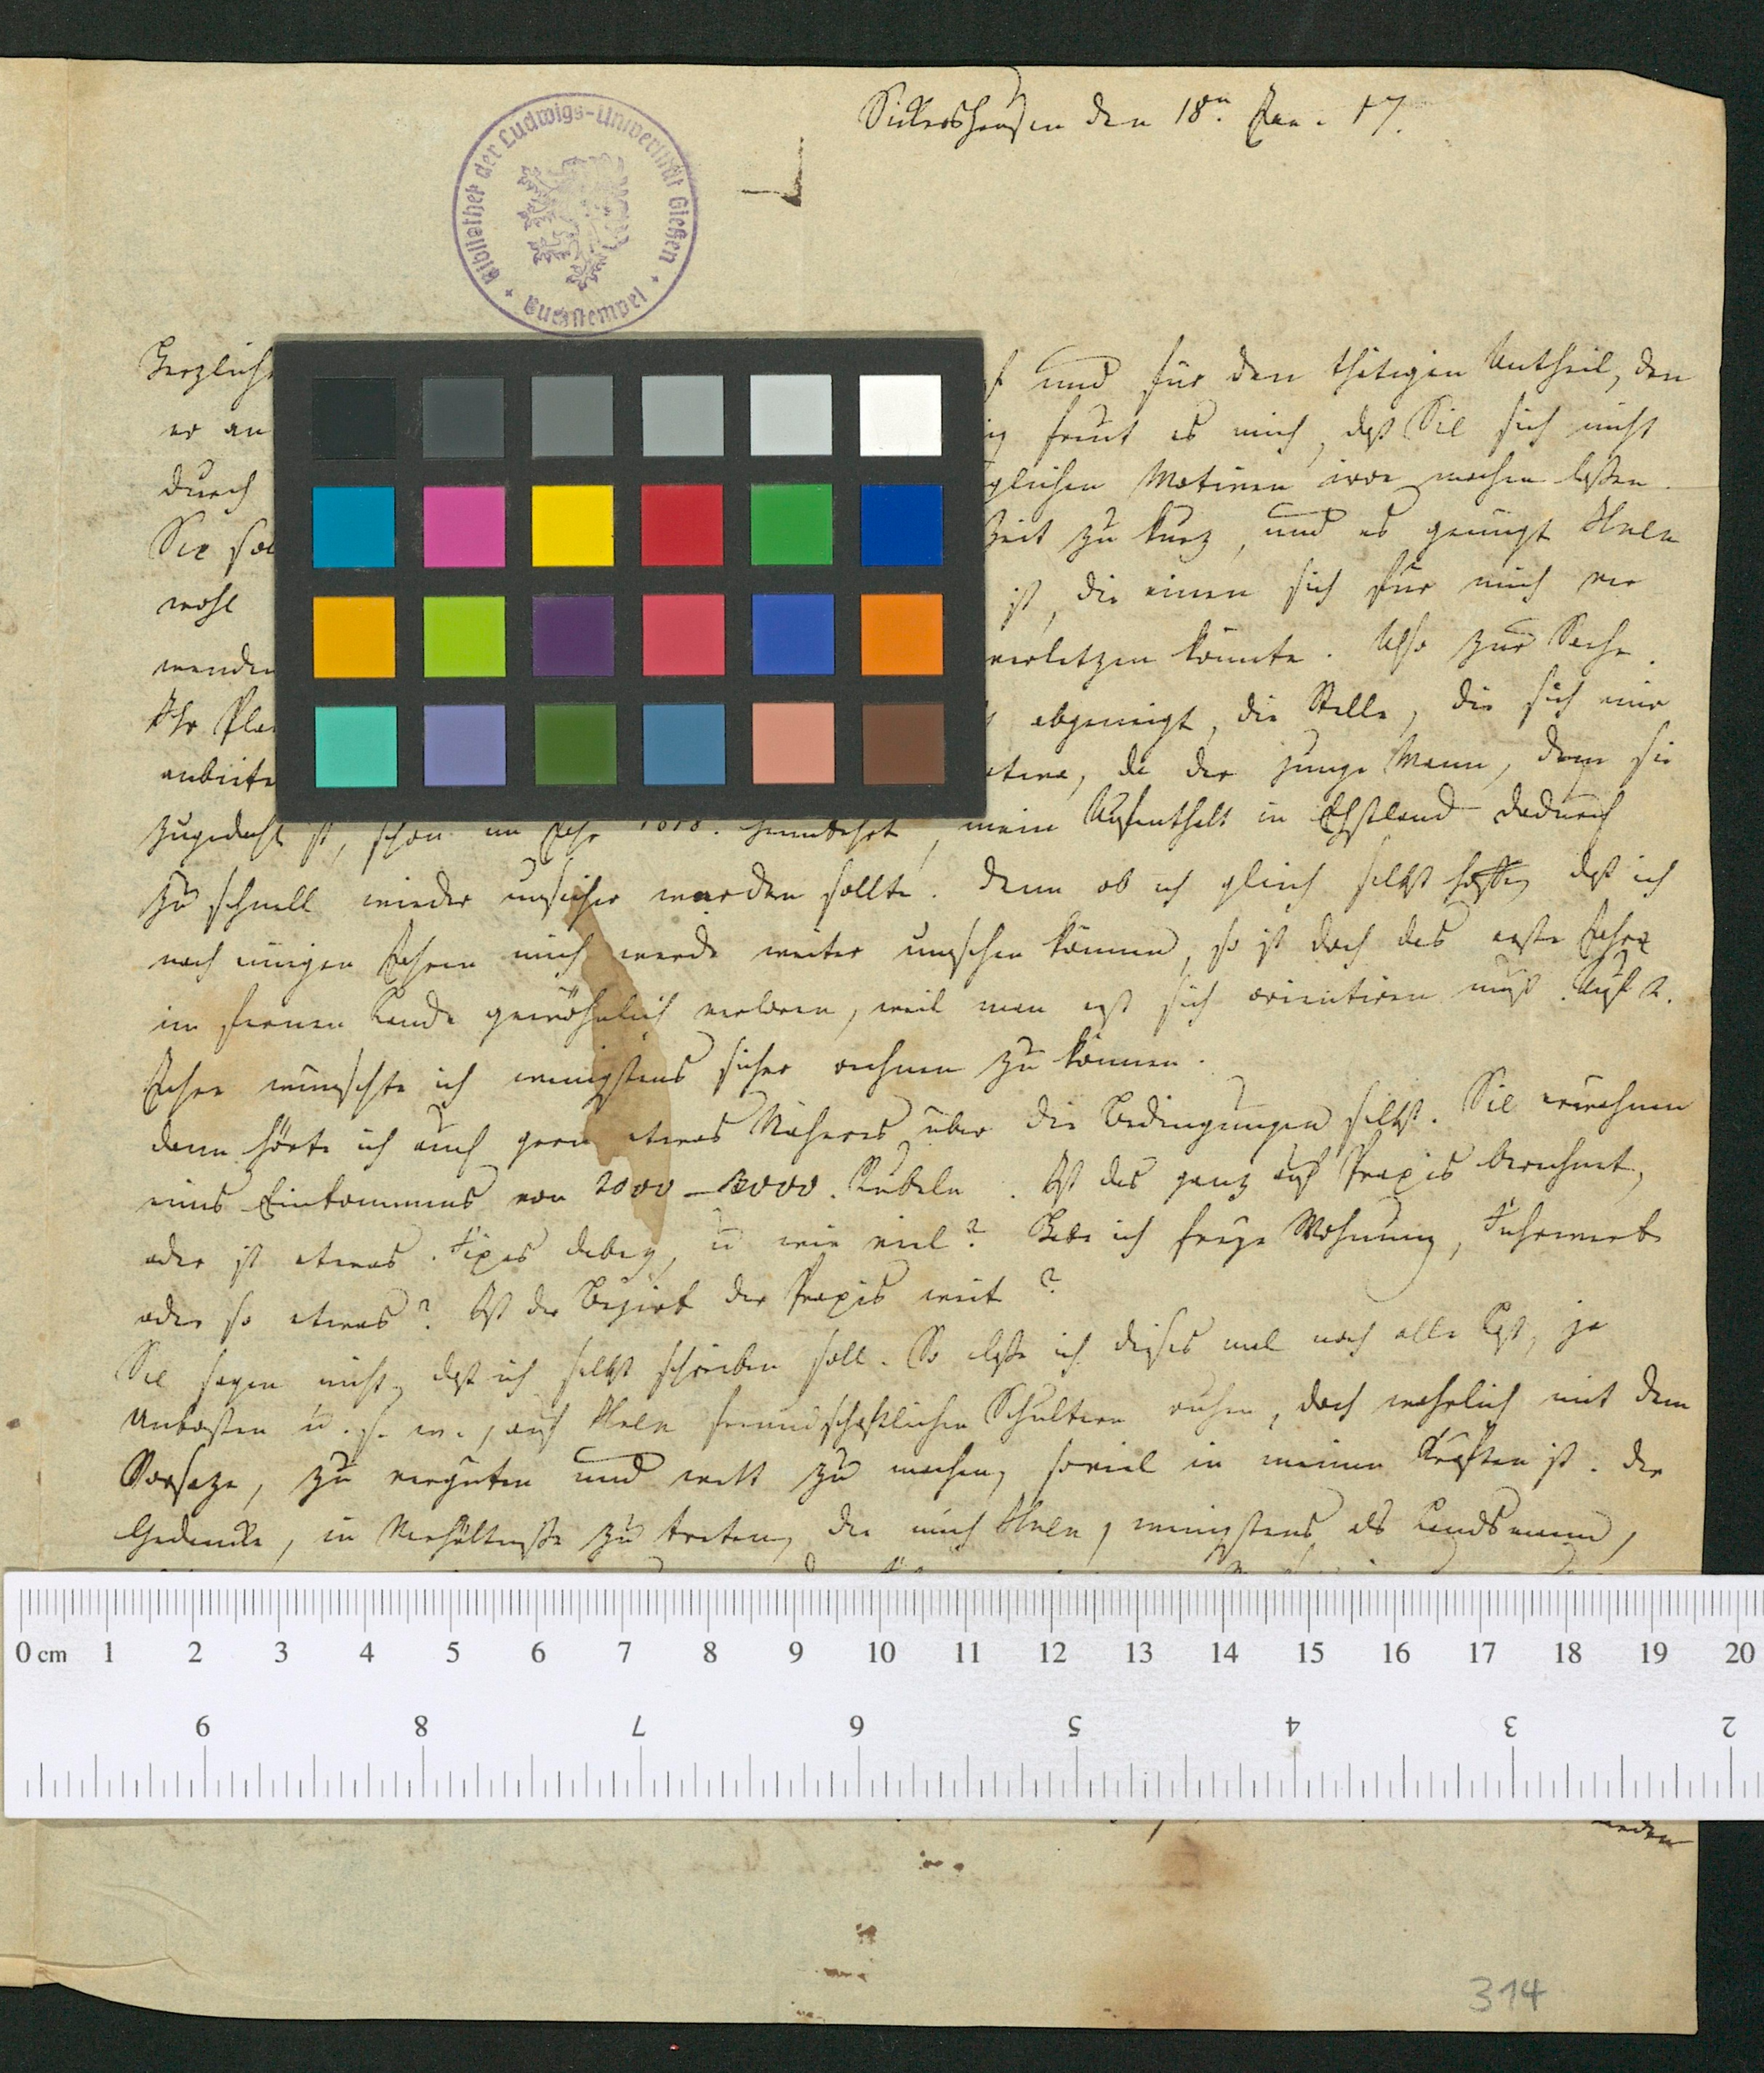 Sickershausen den 18n. Jan. 17.
Bibliothek der Ludwigs-Universität Gießen
Buchstempel
Herzlich und für den thätigen Antheil, den
er an freut es mich, daß Sie sich nicht
durch Motiven irre machen laßen.
Sie Zeit zu kurz, und es genügt Ihnen
wohl ist, die einen sich für mich ver
wenden verletzen könnte. Also zur Sache.
Ihr abgeneigt, die Stelle, die sich mir
anbiete da der junge Mann, dem sie
zugedacht ist, schon im Jahr 1818. mein Aufenthalt in Ehstland dadurch
zu schnell wieder unsicher werden sollte. Denn ob ich gleich selbst hoffe, daß ich
nach einigen Jahren mich werde weiter umsehen können, so ist doch das erste Jahr
im fernen Lande gewöhnlich verloren, weil man erst sich orientiren muß. Auf 2.
Jahre wünschte ich wenigstens sicher rechnen zu können.
Dann hörte ich auch gern etwas Näheres über die Bedingungen selbst. Sie erwähnen
eines Einkommens von 2000 – 3000. Rubeln. Ist das ganz auf Praxis berechnet,
oder ist etwas Fixes dabey, u wie viel? Habe ich freye Wohnung, Fuhrwerk
oder so etwas? Ist der Bezirk der Praxis weit?
Sie sagen nicht, daß ich selbst schreiben soll. So laße ich dieses mal noch alle Last, ja
Unkosten u. s. w., auf Ihren freundschaftlichen Schultern ruhen, doch wahrlich mit dem
Vorsaze, zu vergüten und wett zu machen, soviel in meinen Kräften ist. Der
Gedanke, in Verhältnisse zu treten, die mich Ihnen, wenigstens als Landsmann,
0 cm 1 2 3 4 5 6 7 8 9 10 11 12 13 14 15 16 17 18 19 20
9 8 7 6 5 4 3 2
314